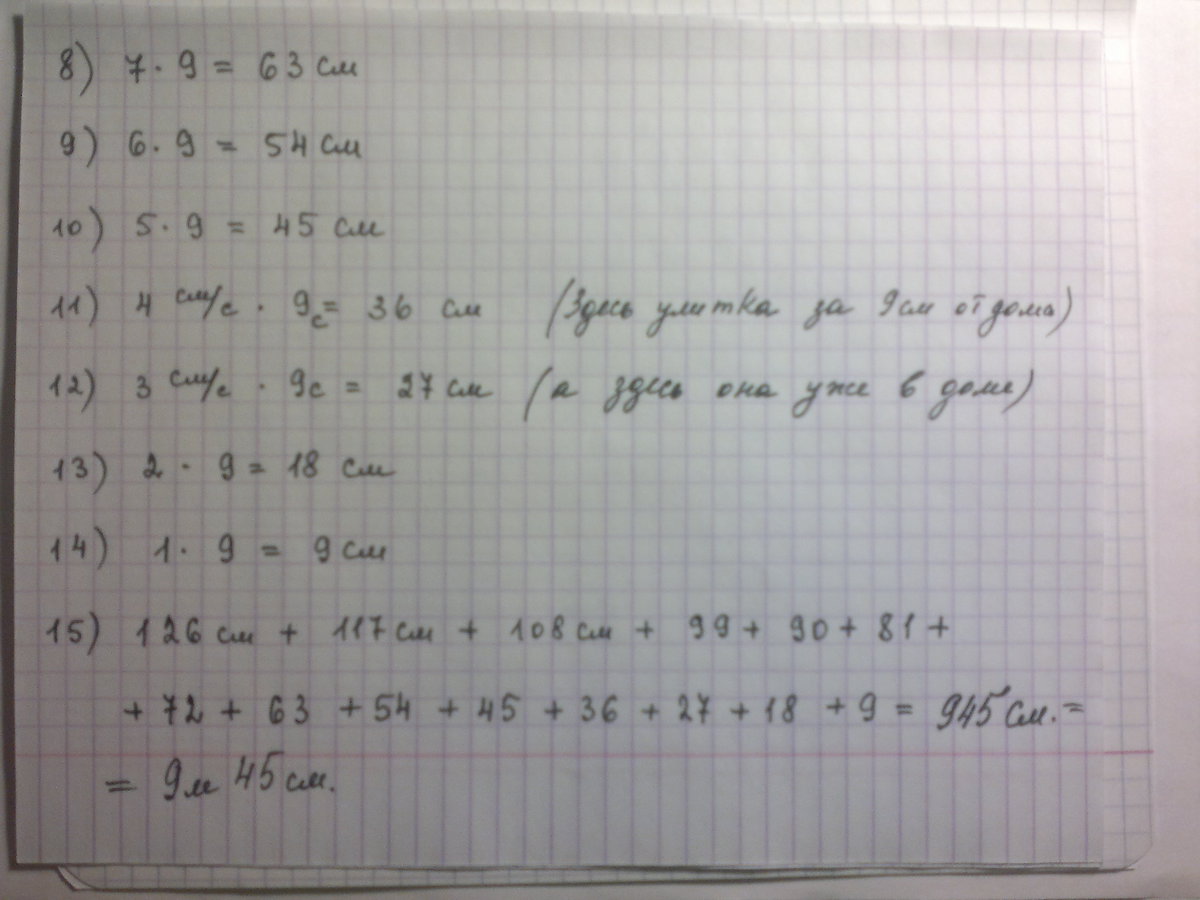 8) 7 · 9 = 63 см
9) 6 · 9 = 54 см
10) 5 · 9 = 45 см
11) 4 см/с · 9с = 36 см (Здесь улитка за 9см от дома)
12) 3 см/с · 9с = 27 см (а здесь она уже в доме)
13) 2 · 9 = 18 см
14) 1 · 9 = 9 см
15) 126 см + 117 см + 108 см + 99 + 90 + 81 +
+ 72 + 63 + 54 + 45 + 36 + 27 + 18 + 9 = 945 см. =
= 9м 45 см.